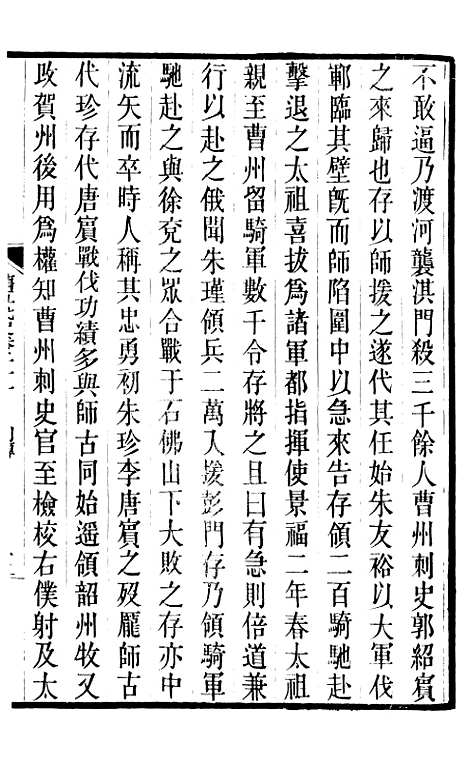 不敢逼乃渡河襲淇門殺三千餘人曹州刺史郭紹賓
之來歸也存以師援之遂代其任始朱友裕以大軍伐
鄆臨其壁旣而師陷圍中以急來告存領二百騎馳赴
擊退之太祖喜拔爲諸軍都指揮使景福二年春太祖
親至曹州留騎軍數千令存將之且曰有急則倍道兼
行以赴之俄聞朱瑾領兵二萬入援彭門存乃領騎軍
馳赴之與徐兗之眾合戰于石佛山下大敗之存亦中
流矢而卒時人稱其忠勇初朱珍李唐賓之歿龐師古
代珍存代唐賓戰伐功績多與師古同始遥領韶州牧又
改賀州後用爲權知曹州刺史官至檢校右僕射及太